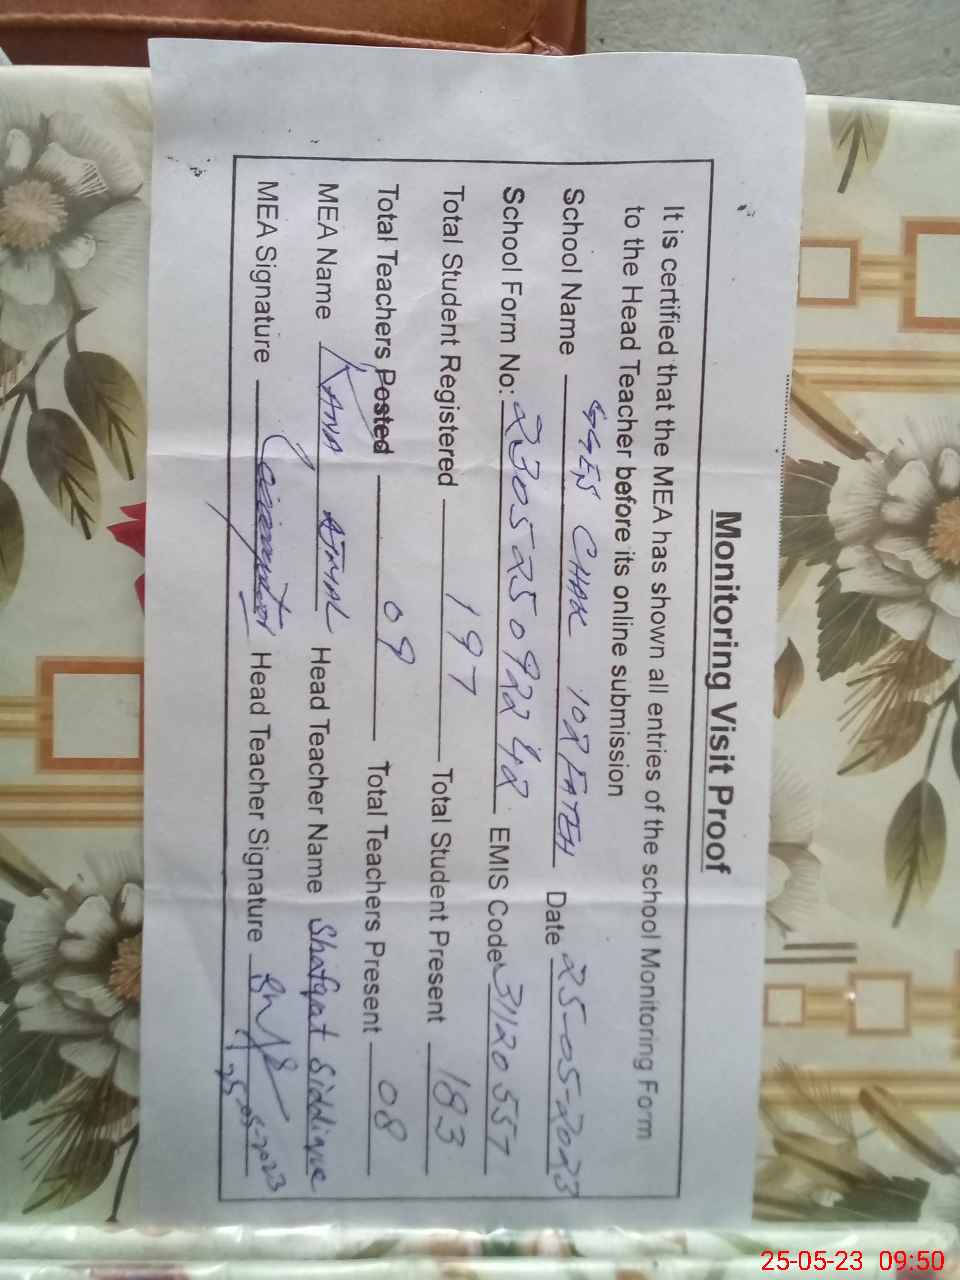 Monitoring Visit Proof
It is certified that the MEA has shown all entries of the school Monitoring Form
to the Head Teacher before its online submission
School Name GGES CHAK 102 FATEH Date 25-05-2023
School Form No: 230525092242 EMIS Code 31120557
Total Student Registered 197 Total Student Present 183
Total Teachers Posted 09 Total Teachers Present 08
MEA Name RANA AJMAL Head Teacher Name Shafqat Siddique
MEA Signature Head Teacher Signature
25-05-2023
25-05-23 09:50